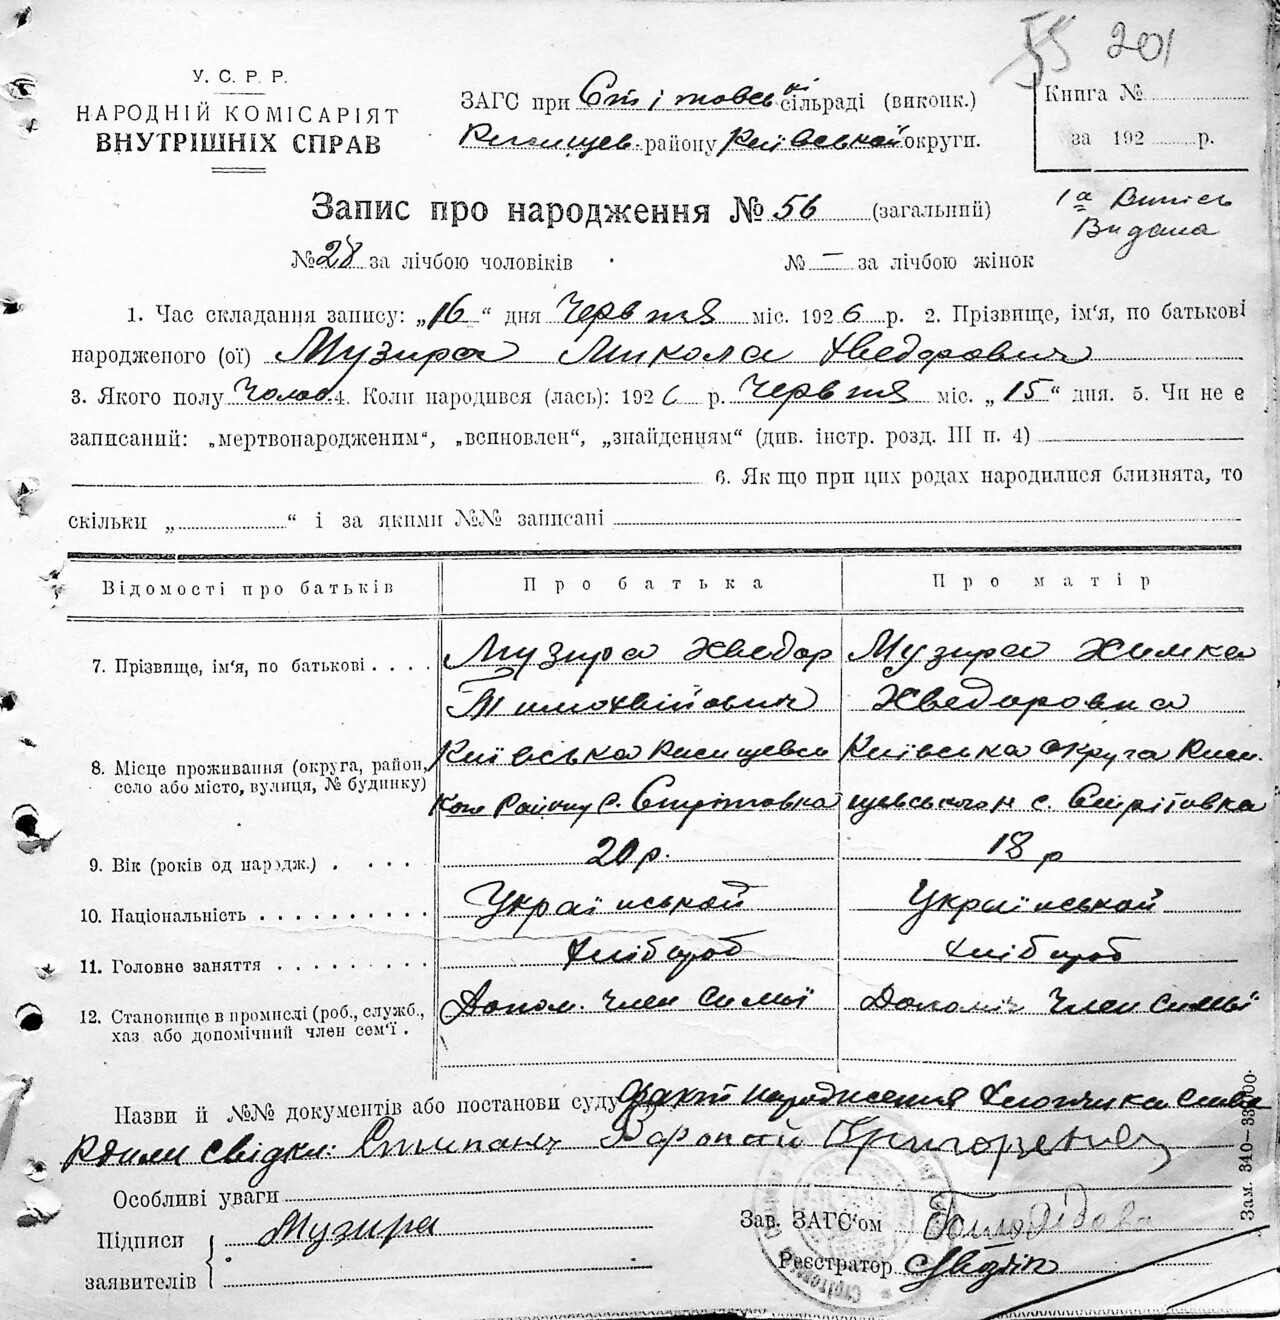 55 201
У. С. Р. Р.
НАРОДНІЙ КОМІСАРІЯТ
ВНУТРІШНІХ СПРАВ
ЗАГС при сільраді (виконк.)
району Київської округи.
Книга №
за 192 р.
1а Випись
Видана
Запис про народження № 56 (загальний)
№ 28 за лічбою чоловіків № — за лічбою жінок
1. Час складання запису: „16“ дня Червня міс. 1926 р. 2. Прізвище, ім'я, по батькові
народженого (ої) Музира Микола Хведорович
3. Якого полу Чолов. 4. Коли народився (лась): 1926 р. Червня міс. „15“ дня. 5. Чи не є
записаний: „мертвонародженим“, „всиновлен“, „знайденням“ (див. інстр. розд. III п. 4)
6. Як що при цих родах народилися близнята, то
скільки „ “ і за якими №№ записані
Відомості про батьків Про батька Про матір
7. Прізвище, ім'я, по батькові Музира Хведор Музира Химка
Тимохвійович Хведоровна
8. Місце проживання (округа, район, село або місто, вулиця, № будинку) Київська Київська округа
Району с. Стрітовка с. Стрітовка
9. Вік (років од народж.) 20 р. 18 р
10. Національність Української Української
11. Головне заняття Хлібороб Хлібороб
12. Становище в промислі (роб., служб., хаз або допомічний член сем'ї. Допом. член симьї Допоміч член симьї
Назви й №№ документів або постанови суду Факт народження хлопчика
свідки: Григоренко
Особливі уваги
Підписи Музира Зав. ЗАГС'ом
заявителів Реєстратор
Зам. 340—33000.